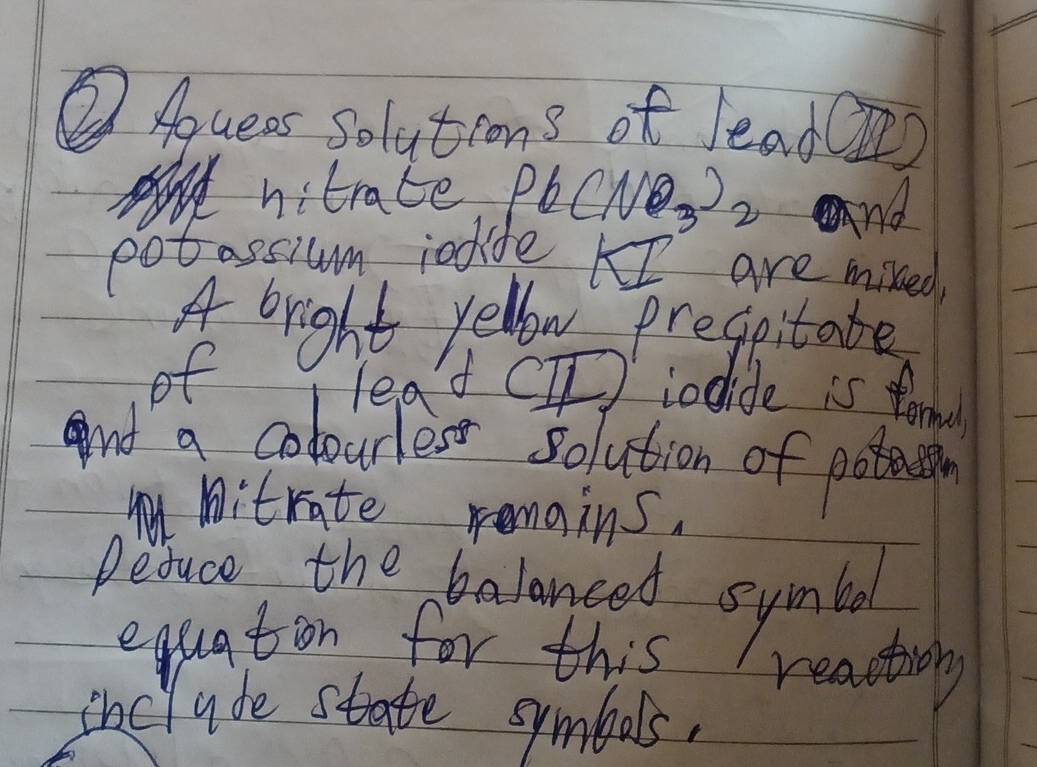 ② Aqueos solutions of lead (II)
nitrate Pb(NO₃)₂ and
potassium iodide KI are mixed.
A bright yellow precipitate
of lead (II) iodide is formed,
and a colourless solution of potassium
nitrate remains.
Deduce the balanced symbol
equation for this reaction,
include state symbols.